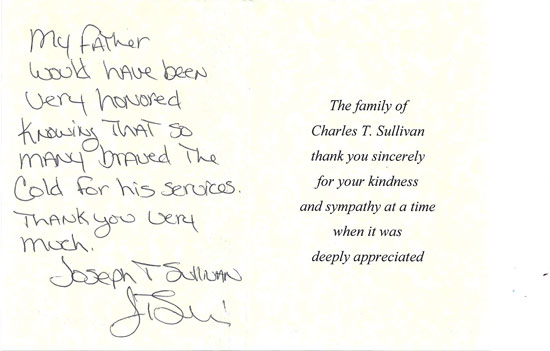 My Father
would have been
very honored
Knowing THAT so
MANY braved The
Cold for his services.
THANK you very
much.
Joseph T Sullivan
The family of
Charles T. Sullivan
thank you sincerely
for your kindness
and sympathy at a time
when it was
deeply appreciated